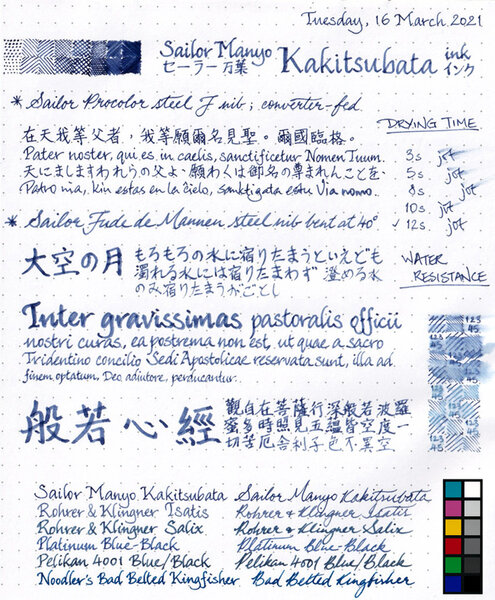 Tuesday, 16 March 2021
Sailor Manyo Kakitsubata ink
セーラー万葉 インク
* Sailor Procolor steel F nib; converter-fed
在天我等父者，我等願爾名見聖。爾國臨格。
Pater noster, qui es in caelis, sanctificetur Nomen Tuum.
天にまします われらの父よ、願わくは御名の尊まれんことを、
Patro nia, kiu estas en la ĉielo, sanktigata estu Via nomo.
DRYING TIME
3s. jot
5s. jot
8s. jot
10s. jot
✓ 12s. jot
* Sailor Fude de Mannen steel nib bent at 40°
大空の月 もろもろの水に宿りたまうといえども
濁れる水には宿りたまわず 澄める水
のみ宿りたまうがごとし
WATER
RESISTANCE
Inter gravissimas pastoralis officii
nostri curas, ea postrema non est, ut quae a sacro
Tridentino concilio Sedi Apostolicae reservata sunt, illa ad
finem optatum, Deo adiutore, perducantur.
123
45
123
45
123
45
般若心經 觀自在菩薩行深般若波羅
蜜多時照見五蘊皆空度一
切苦厄舍利子色不異空
Sailor Manyo Kakitsubata Sailor Manyo Kakitsubata
Rohrer & Klingner Isatis Rohrer & Klingner Isatis
Rohrer & Klingner Salix Rohrer & Klingner Salix
Platinum Blue-Black Platinum Blue-Black
Pelikan 4001 Blue/Black Pelikan 4001 Blue/Black
Noodler's Bad Belted Kingfisher Bad Belted Kingfisher